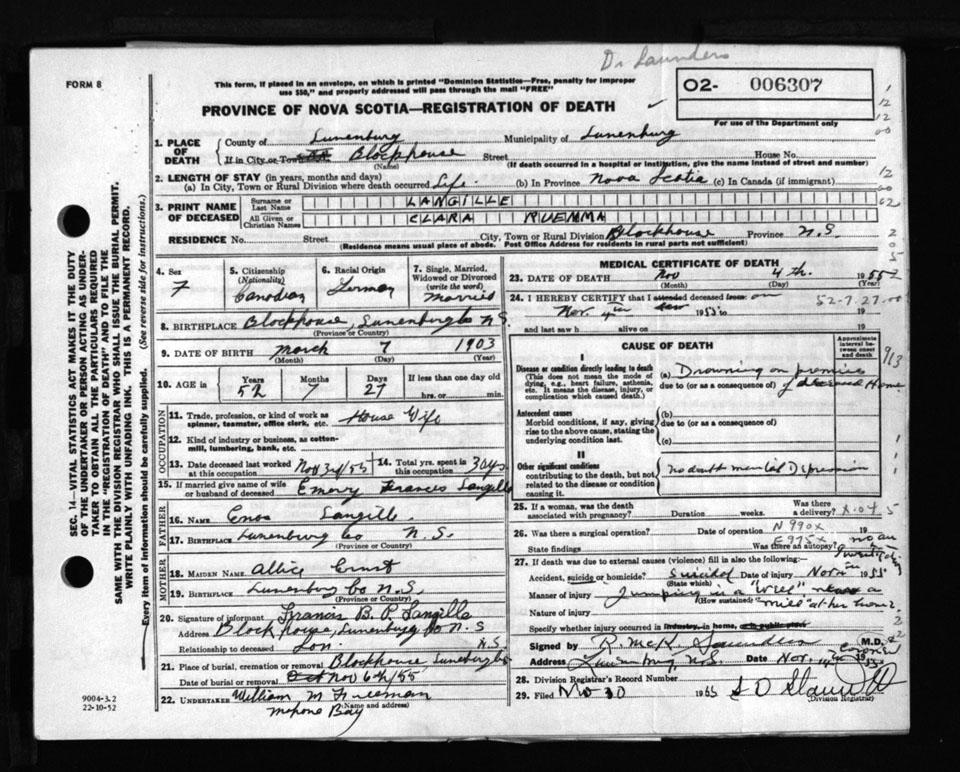 Dr Saunders
FORM 8
This form, if placed in an envelope, on which is printed "Dominion Statistics—Free, penalty for improper
use $50," and properly addressed will pass through the mail "FREE"
O2- 006307
For use of the Department only
PROVINCE OF NOVA SCOTIA—REGISTRATION OF DEATH
1. PLACE OF DEATH
County of Lunenburg Municipality of Lunenburg
If in City or Town Blockhouse Street House No.
(Name) (If death occurred in a hospital or institution, give the name instead of street and number)
2. LENGTH OF STAY (in years, months and days)
(a) In City, Town or Rural Division where death occurred Life. (b) In Province Nova Scotia (c) In Canada (if immigrant)
3. PRINT NAME OF DECEASED
Surname or Last Name LANGILLE
All Given or Christian Names CLARA RUEMMA
RESIDENCE No. Street City, Town or Rural Division Blockhouse Province N.S.
(Residence means usual place of abode. Post Office Address for residents in rural parts not sufficient)
4. Sex F
5. Citizenship (Nationality) Canadian
6. Racial Origin German
7. Single, Married, Widowed or Divorced (write the word) Married
8. BIRTHPLACE Blockhouse, Lunenburg Co N.S.
(Province or Country)
9. DATE OF BIRTH March 7 1903
(Month) (Day) (Year)
10. AGE in Years Months Days If less than one day old
52 7 27 hrs. or min.
OCCUPATION
11. Trade, profession, or kind of work as spinner, teamster, office clerk, etc. House Wife
12. Kind of industry or business, as cotton-mill, lumbering, bank, etc.
13. Date deceased last worked at this occupation Nov 3rd/55
14. Total yrs. spent in this occupation 30 yrs
15. If married give name of wife or husband of deceased Emery Frances Langille
FATHER
16. NAME Enos Langille
17. BIRTHPLACE Lunenburg Co N.S.
(Province or Country)
MOTHER
18. MAIDEN NAME Allice Ernst
19. BIRTHPLACE Lunenburg Co N.S.
(Province or Country)
20. Signature of informant Francis B. P. Langille
Address Blockhouse, Lunenburg Co N.S
Relationship to deceased Son. N.S.
21. Place of burial, cremation or removal Blockhouse, Lunenburg Co
Date of burial or removal Oct Nov 6th/55
22. UNDERTAKER William M Freeman
(Name and address)
Mahone Bay
MEDICAL CERTIFICATE OF DEATH
23. DATE OF DEATH Nov 4th. 1955
(Month) (Day)
24. I HEREBY CERTIFY that I attended deceased from on
Nov. 4th 1955 to 19
and last saw h alive on
52-7-27-00
CAUSE OF DEATH
Approximate interval between onset and death
I
Disease or condition directly leading to death
(This does not mean the mode of dying, e.g., heart failure, asthenia, etc. It means the disease, injury, or complication which caused death.)
(a) Drowning on premises
due to (or as a consequence) of deceased Home
913
Antecedent causes
Morbid conditions, if any, giving rise to the above cause, stating the underlying condition last.
(b)
due to (or as a consequence of)
(c)
II
Other significant conditions
contributing to the death, but not related to the disease or condition causing it.
no doubt mental Depression
25. If a woman, was the death associated with pregnancy? Duration weeks. Was there a delivery?
26. Was there a surgical operation? Date of operation N990X
State findings E975X Was there an autopsy?
27. If death was due to external causes (violence) fill in also the following:
Accident, suicide or homicide? Suicide Date of injury Nov 4th 1955
(State which)
Manner of injury Jumping in a "Well" near a
(How sustained) "mill" at her home
Nature of injury
Specify whether injury occurred in industry, in home, or in public place
Signed by R. McK Saunders M.D.
Coroner
Address Lunenburg, N.S. Date Nov. 1955
28. Division Registrar's Record Number
29. Filed Nov 30 1955
(Division Registrar)
SEC. 14—VITAL STATISTICS ACT MAKES IT THE DUTY
OF THE UNDERTAKER OR PERSON ACTING AS UNDER-
TAKER TO OBTAIN ALL THE PARTICULARS REQUIRED
IN THE "REGISTRATION OF DEATH" AND TO FILE THE
SAME WITH THE DIVISION REGISTRAR WHO SHALL ISSUE THE BURIAL PERMIT.
WRITE PLAINLY WITH UNFADING INK. THIS IS A PERMANENT RECORD.
Every item of information should be carefully supplied. (See reverse side for instructions.)
9004-3.2
22-10-52